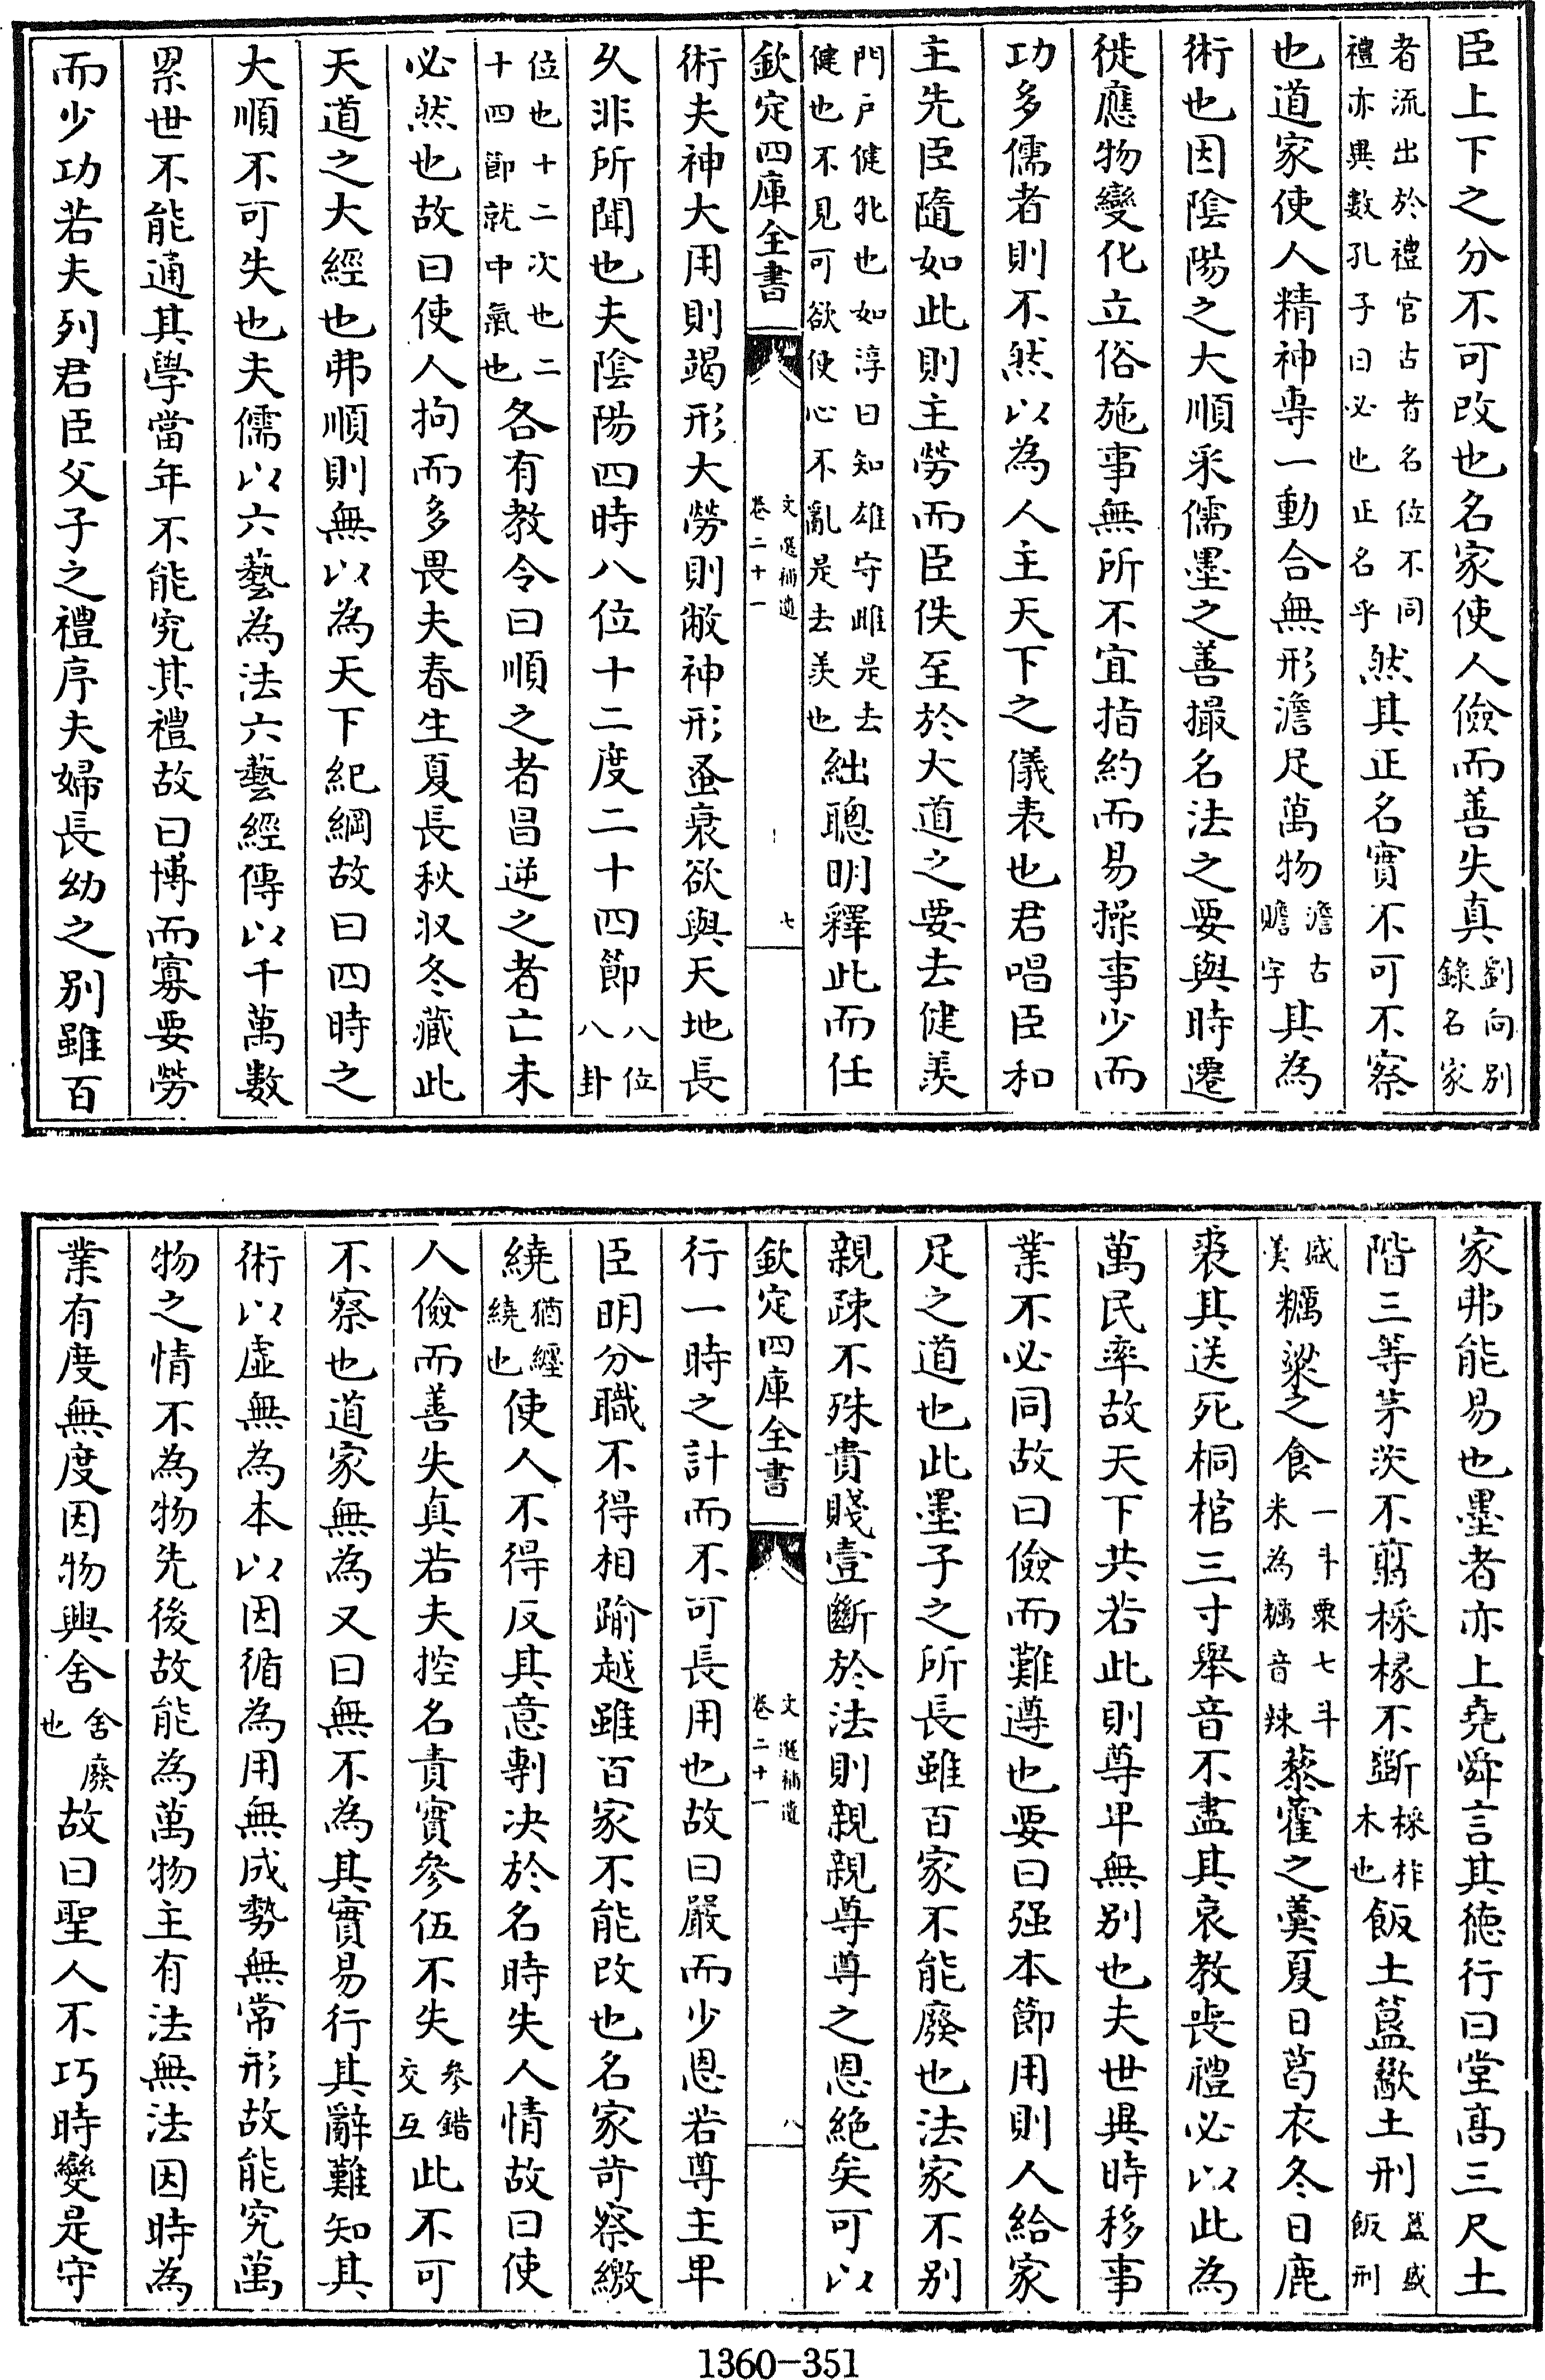 臣上下之分不可改也名家使人儉而善失真劉向别錄名家
者流出於禮官古者名位不同禮亦異數孔子曰必也正名乎然其正名實不可不察
也道家使人精神專一動合無形澹足萬物澹古贍字其為
術也因陰陽之大順采儒墨之善撮名法之要與時遷
徙應物變化立俗施事無所不宜指約而易操事少而
功多儒者則不然以為人主天下之儀表也君唱臣和
主先臣隨如此則主勞而臣佚至於大道之要去健羨
門户健牝也如淳曰知雄守雌是去健也不見可欲使心不亂是去羨也絀聰明釋此而任
欽定四庫全書 文選補遺卷二十一 七
術夫神大用則竭形大勞則敝神形蚤衰欲與天地長
乆非所聞也夫陰陽四時八位十二度二十四節八位八卦
位也十二次也二十四節就中氣也各有教令曰順之者昌逆之者亡未
必然也故曰使人拘而多畏夫春生夏長秋收冬藏此
天道之大經也弗順則無以為天下紀綱故曰四時之
大順不可失也夫儒以六藝為法六藝經傳以千萬數
累世不能通其學當年不能究其禮故曰博而寡要勞
而少功若夫列君臣父子之禮序夫婦長幼之别雖百
家弗能易也墨者亦上堯舜言其徳行曰堂髙三尺土
階三等茅茨不翦採椽不斵採柞木也飯土簋歠土刑簋盛飯刑
盛羮糲粱之食一斗粟七斗米為糲音辣藜藿之羮夏日葛衣冬日鹿
裘其送死桐棺三寸舉音不盡其哀教喪禮必以此為
萬民率故天下共若此則尊卑無别也夫世異時移事
業不必同故曰儉而難遵也要曰强本節用則人給家
足之道也此墨子之所長雖百家不能廢也法家不别
親疎不殊貴賤壹斷於法則親親尊尊之恩絶矣可以
欽定四庫全書 文選補遺卷二十一 八
行一時之計而不可長用也故曰嚴而少恩若尊主卑
臣明分職不得相踰越雖百家不能改也名家苛察繳
繞猶纒繞也使人不得反其意剸决於名時失人情故曰使
人儉而善失真若夫控名責實參伍不失參錯交互此不可
不察也道家無為又曰無不為其實易行其辭難知其
術以虚無為本以因循為用無成勢無常形故能究萬
物之情不為物先後故能為萬物主有法無法因時為
業有度無度因物與舍舍廢也故曰聖人不巧時變是守
1360-351